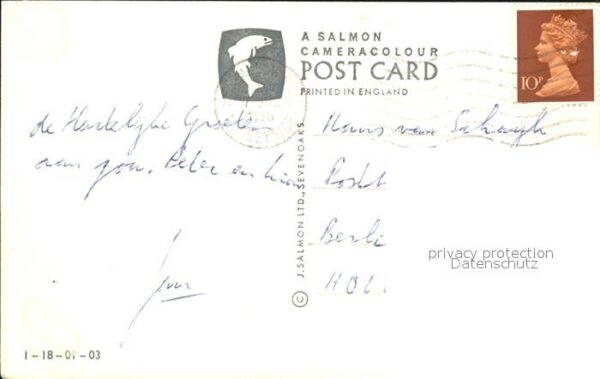 A SALMON
CAMERACOLOUR
POST CARD
PRINTED IN ENGLAND
10P
de Hartelijke Groeten
aan jou, Peter en
Hans van Schaijk
Postb
Berli
HOL
privacy protection
Datenschutz
© J. SALMON LTD., SEVENOAKS
1-18-01-03